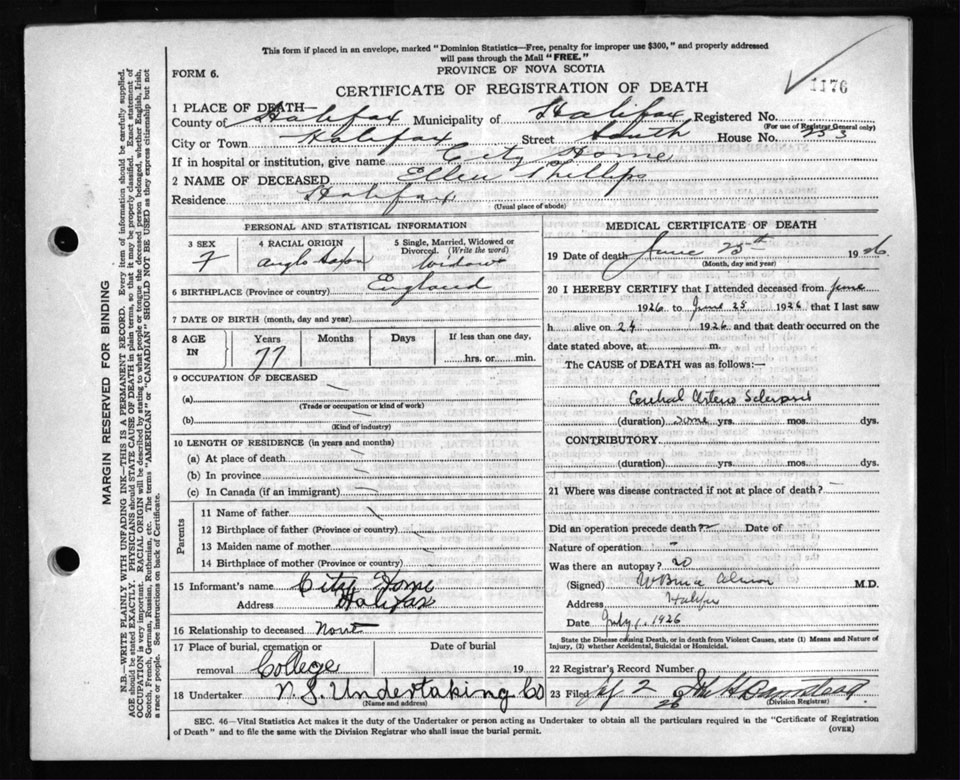 This form if placed in an envelope, marked "Dominion Statistics—Free, penalty for improper use $300," and properly addressed
will pass through the Mail "FREE."
FORM 6.
PROVINCE OF NOVA SCOTIA
CERTIFICATE OF REGISTRATION OF DEATH
1176
1 PLACE OF DEATH—
County of Halifax Municipality of Halifax Registered No.
(For use of Registrar General only)
City or Town Halifax Street South House No.
If in hospital or institution, give name City Home
2 NAME OF DECEASED Ellen Phillips
Residence Halifax
(Usual place of abode)
PERSONAL AND STATISTICAL INFORMATION
3 SEX
F
4 RACIAL ORIGIN
Anglo Saxon
5 Single, Married, Widowed or
Divorced. (Write the word)
Widow
6 BIRTHPLACE (Province or country) England
7 DATE OF BIRTH (month, day and year)
8 AGE IN
Years
77
Months
Days
If less than one day,
hrs. or min.
9 OCCUPATION OF DECEASED
(a)
(Trade or occupation or kind of work)
(b)
(Kind of industry)
10 LENGTH OF RESIDENCE (in years and months)
(a) At place of death
(b) In province
(c) In Canada (if an immigrant)
Parents
11 Name of father
12 Birthplace of father (Province or country)
13 Maiden name of mother
14 Birthplace of mother (Province or country)
15 Informant's name City Home
Address Halifax
16 Relationship to deceased None
17 Place of burial, cremation or Date of burial
removal College 19
18 Undertaker N.S. Undertaking Co
(Name and address)
MEDICAL CERTIFICATE OF DEATH
19 Date of death June 25th 1926
(Month, day and year)
20 I HEREBY CERTIFY that I attended deceased from June
1926 to June 25 1926 that I last saw
h alive on 24 1926 and that death occurred on
date stated above, at m.
The CAUSE of DEATH was as follows:—
Arterio Sclerosis
(duration) some yrs. mos. dys.
CONTRIBUTORY
(duration) yrs. mos. dys.
21 Where was disease contracted if not at place of death?
Did an operation precede death? no Date of
Nature of operation -
Was there an autopsy? no
(Signed) W Bruce Almon M.D.
Address Halifax
Date July 1. 1926
State the Disease causing Death, or in death from Violent Causes, state (1) Means and Nature of
Injury, (2) whether Accidental, Suicidal or Homicidal.
22 Registrar's Record Number
23 Filed July 2 26
(Division Registrar)
SEC. 46—Vital Statistics Act makes it the duty of the Undertaker or person acting as Undertaker to obtain all the particulars required in the "Certificate of Registration
of Death" and to file the same with the Division Registrar who shall issue the burial permit.
(OVER)
MARGIN RESERVED FOR BINDING
N.B.—WRITE PLAINLY WITH UNFADING INK—THIS IS A PERMANENT RECORD. Every item of information should be carefully supplied.
AGE should be stated EXACTLY. PHYSICIANS should STATE CAUSE OF DEATH in plain terms, so that it may be properly classified. Exact statement of
OCCUPATION is very important. RACIAL ORIGIN will be described by stating to what people or tongue the deceased person belonged, whether English, Irish,
Scotch, French, German, Russian, Ruthenian, etc. The terms "AMERICAN" or "CANADIAN" SHOULD NOT BE USED as they express citizenship but not
a race or people. See instructions on back of Certificate.